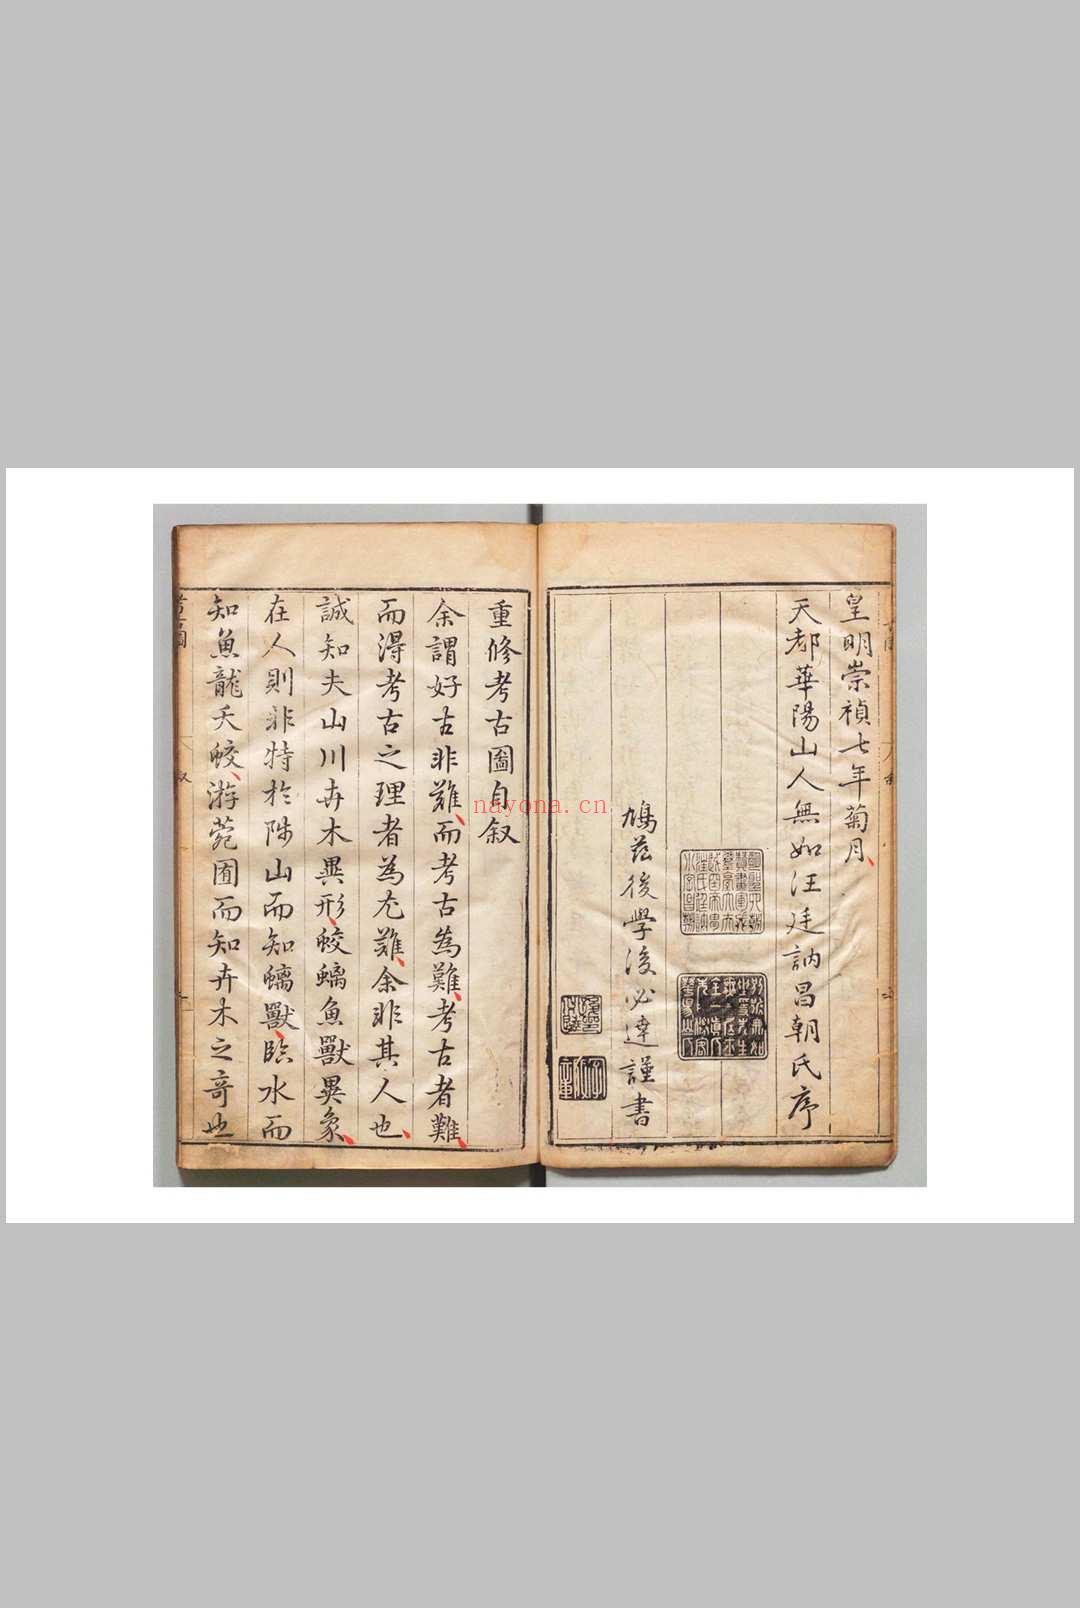 皇明崇禎七年菊月
天都華陽山人無如汪廷訥昌朝氏序
鳩茲後學後必達謹書
重修考古圖自叙
余謂好古非難而考古為難考古者難
而得考古之理者為尤難余非其人也
誠知夫山川卉木異形蛟螭魚獸異象
在人則非特於陟山而知螭獸臨水而
知魚龍夭蛟游菀囿而知卉木之竒也
nayona.cn